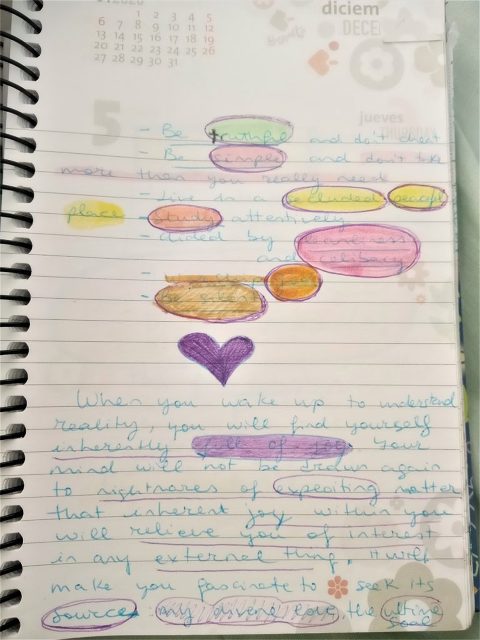 1/2020
1 2 3 4 5
6 7 8 9 10 11 12
13 14 15 16 17 18 19
20 21 22 23 24 25 26
27 28 29 30 31
diciem
DECE
5
jueves
- Be truthful and don't cheat
- Be simple and don't take
more than you really need
- Live in a secluded, peaceful
place
- Study attentively
- by cleanliness
and celibacy
-
- Be
When you wake up to understand
reality, you will find yourself
inherently full of joy. Your
mind will not be drawn again
to nightmares of expoiting matter
that inherent joy within you
will relieve you of interest
in any external thing. it will
make you fascinate to seek its
source my divine love, the ultime
goal